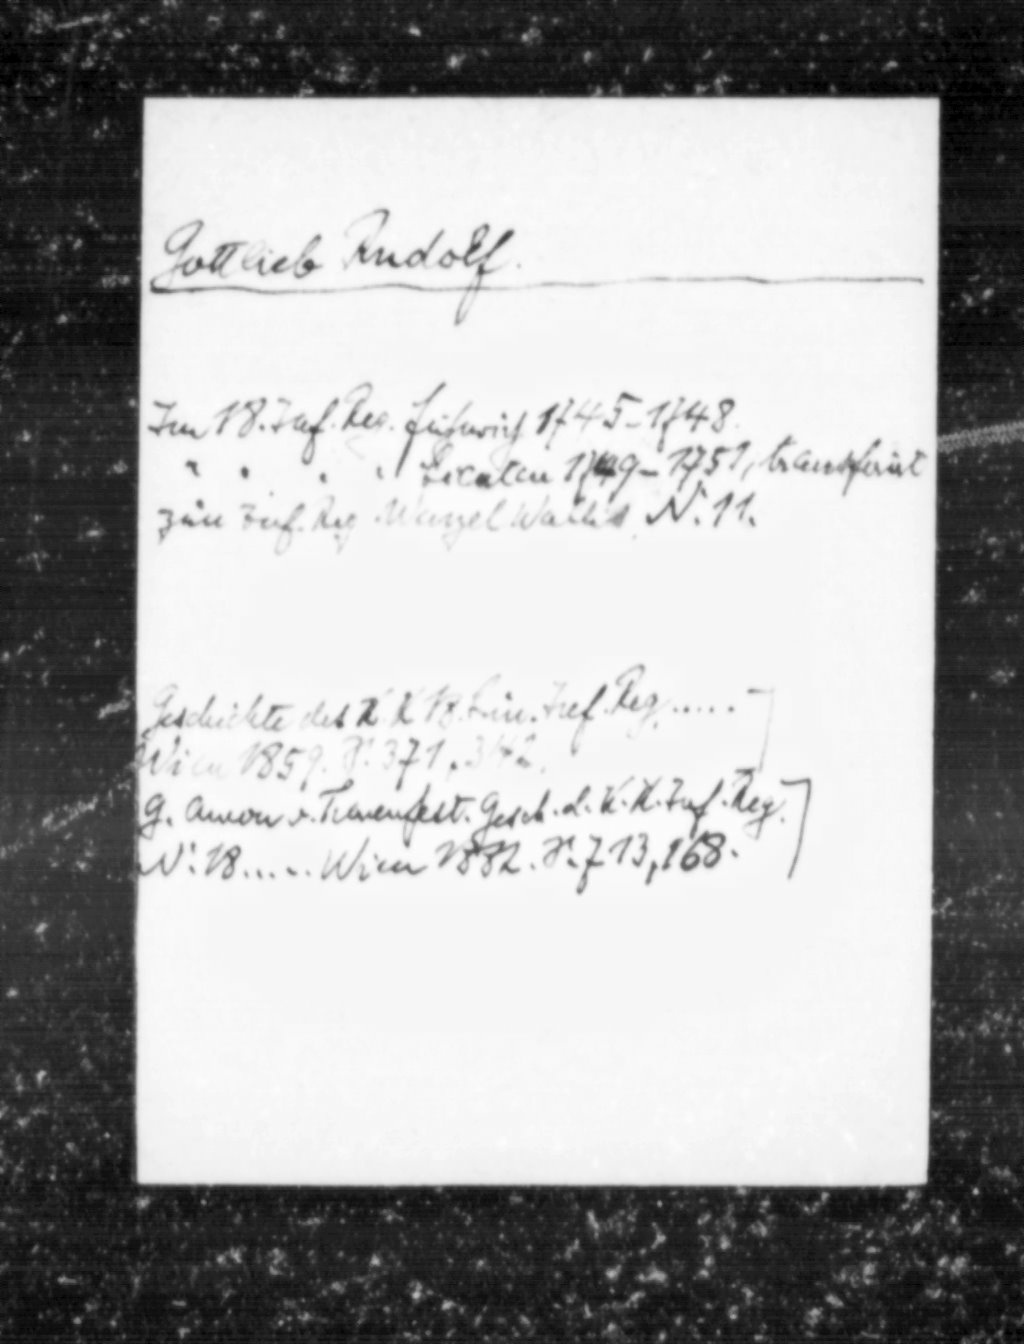 Gottlieb Rudolf.
Im 18. Inf. Reg. Fähnrich 1745-1748.
" " " " 1749-1751, transferirt
zum Inf. Reg. Wenzel Wallis, N: 11.
Geschichte des K. K. 18. Lin. Inf. Reg. .....
Wien 1859. S. 371, 342.
G. Amon v. Treuenfest. Gesch. d. K. K. Inf. Reg.
N: 18..... Wien 1882. S. 713, 168.